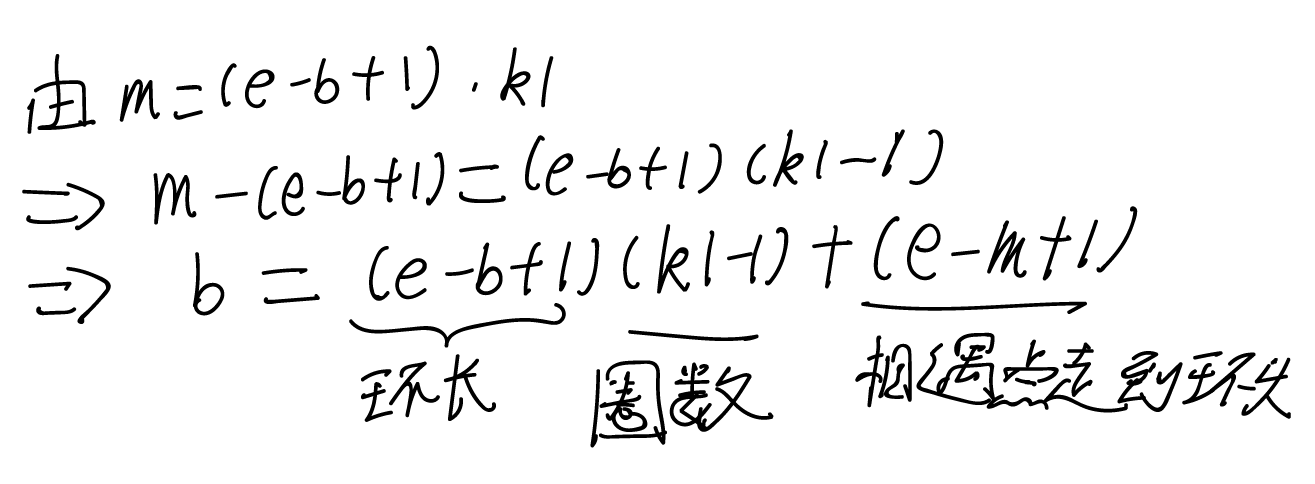 由 m=(e-b+1)·k1
⇒ m-(e-b+1)=(e-b+1)(k1-1)
⇒ b=(e-b+1)(k1-1)+(e-m+1)
环长 圈数 相遇点走到环头